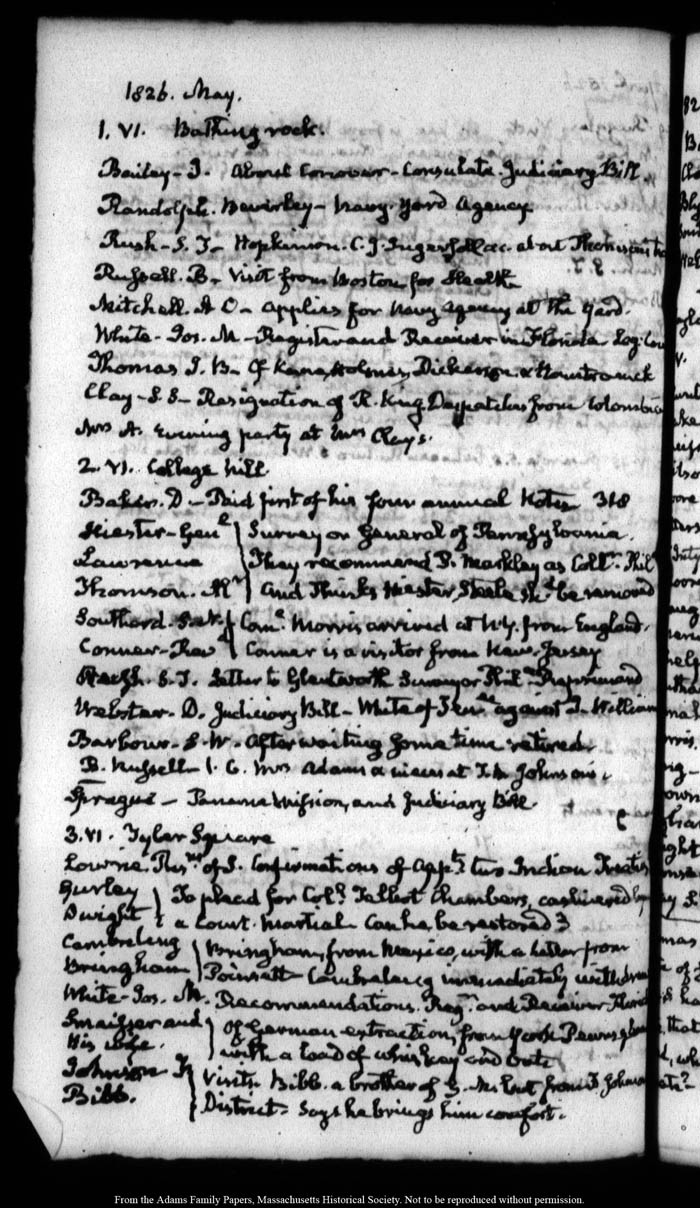 1826. May.
1. VI. Bathing rock.
Bailey - J. Consulate. Judiciary Bill.
Randolph. Beverley - Navy Yard Agency
Rush - S. T - Hopkinson. C. J. Ingersoll &c. about Thomson's
Russell. B - Visit from Boston for Health
Mitchell. A C - applies for Navy agency at the Yard.
White - Jos. M - Register and Receiver in Florida Leg:
Thomas J. B - Of Kane, Holmes, Dickerson &
Clay - S. S - Resignation of R. King Despatches from Colombia
Mrs A. Evening party at Mrs Clay's.
2. VI. College hill
Baker. D - Paid first of his four annual Notes 318
Hiester - Genl } Surveyor General of Pennsylvania.
Lawrence } They recommend P. Markley as Collr. Phil
Thomson. Alr } and thinks Hiester, Steele shd be removed
Southard. S. N. } Come. Morris arrived at N.Y. from England.
Conner - Revd } Conner is a visitor from New-Jersey
Rush. S. T. Letter to Glentworth Surveyor Phila Reprimand
Webster. D. Judiciary Bill - White of Tenne against J. William
Barbour - S. W. After waiting some time retired.
B. Russell - I. C. Mrs Adams at T. B. Johnson's.
Sprague - Panama Mission, and Judiciary Bill.
3. VI. Tyber Square
Lowrie. of S. Confirmations of Appts two Indian Treaties
Gurley } To plead for Coll. Talbot Chambers, cashiered by
Dwight } a Court. Martial Can he be restored?
Cambreleng } Bringham, from Mexico, with a letter from
Bringham } Poinsett - Cambreleng immediately withdrew
White - Jos. M. Recommendations. Regr. and Receiver Florid
Smeisser and } Of German extraction, from York Pennsylvan
His wife. } with a load of whiskey and Oats
Johnson F. } Visit. Bibb. a brother of G. M. but from F. Johnson
Bibb. } District - Says he brings him comfort.
From the Adams Family Papers, Massachusetts Historical Society. Not to be reproduced without permission.